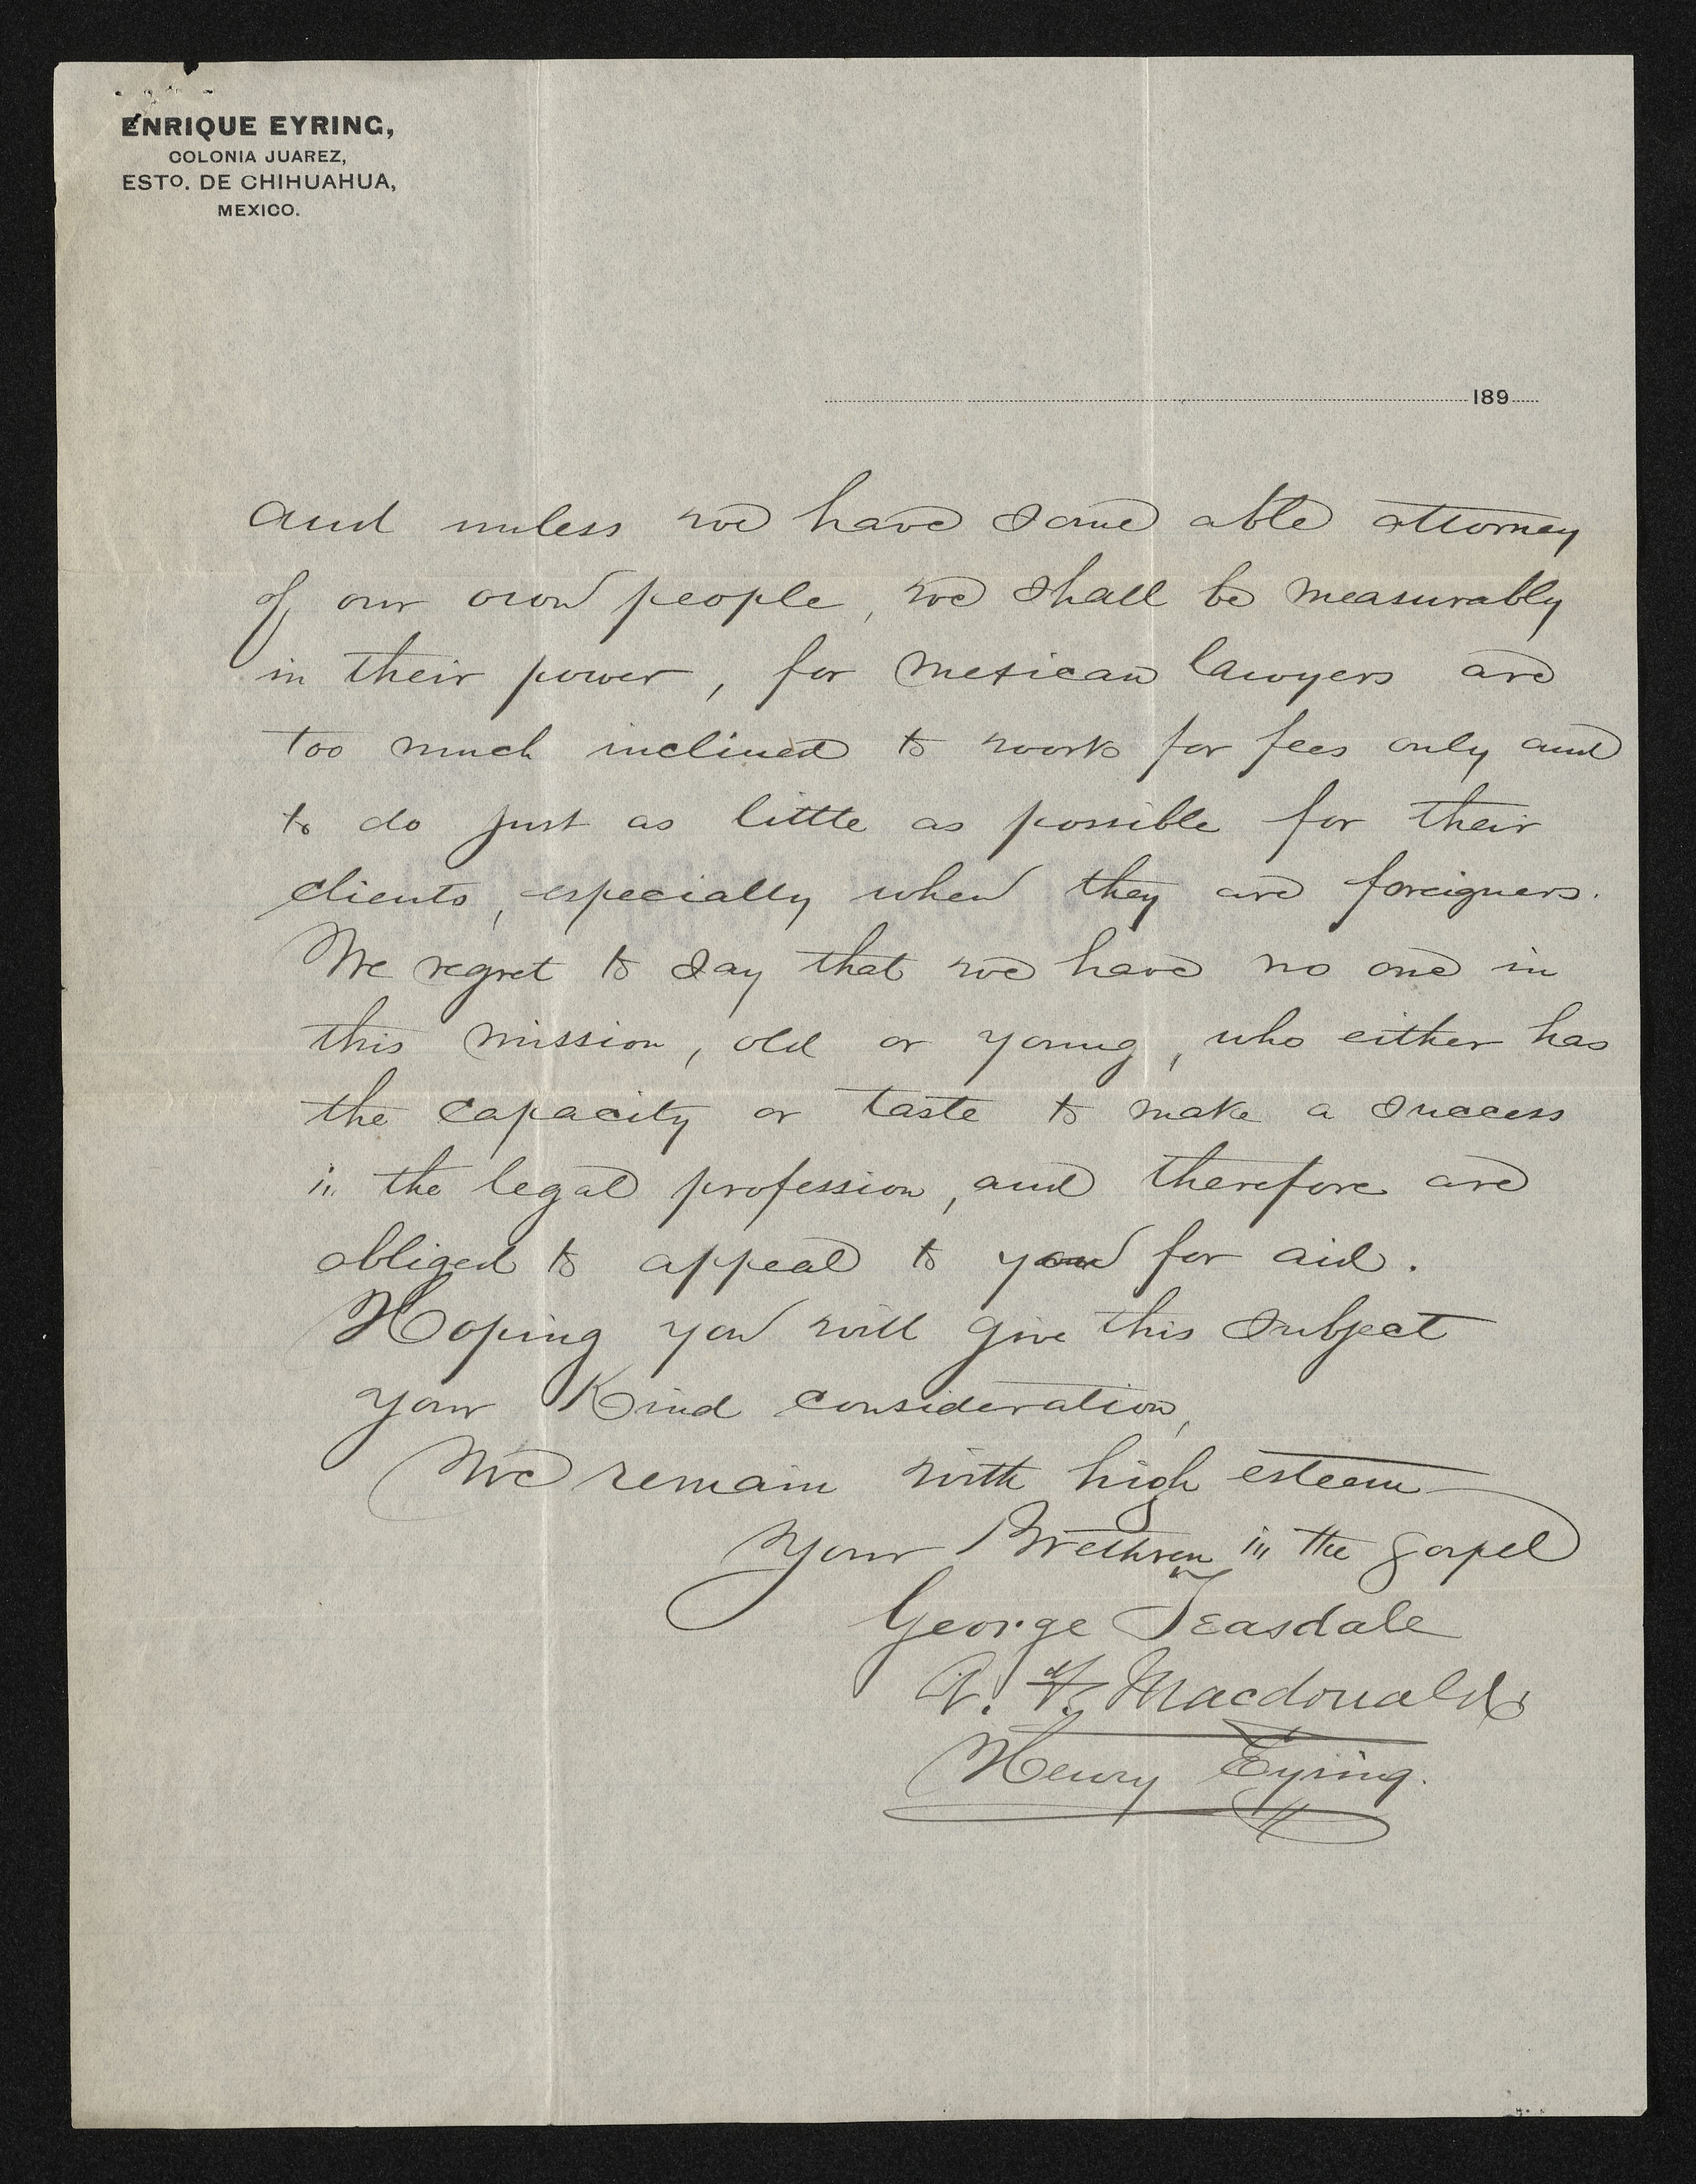 ENRIQUE EYRING,
COLONIA JUAREZ,
ESTO. DE CHIHUAHUA,
MEXICO.
189
and unless we have some able attorney
of our own people, we shall be measurably
in their power, for Mexican lawyers are
too much inclined to work for fees only and
to do just as little as possible for their
clients, especially when they are foreigners.
We regret to say that we have no one in
this mission, old or young, who either has
the capacity or taste to make a success
in the legal profession, and therefore are
obliged to appeal to you for aid.
Hoping you will give this subject
your kind consideration,
We remain with high esteem
Your Brethren in the gospel
George Teasdale
A. F. Macdonald
Henry Eyring.